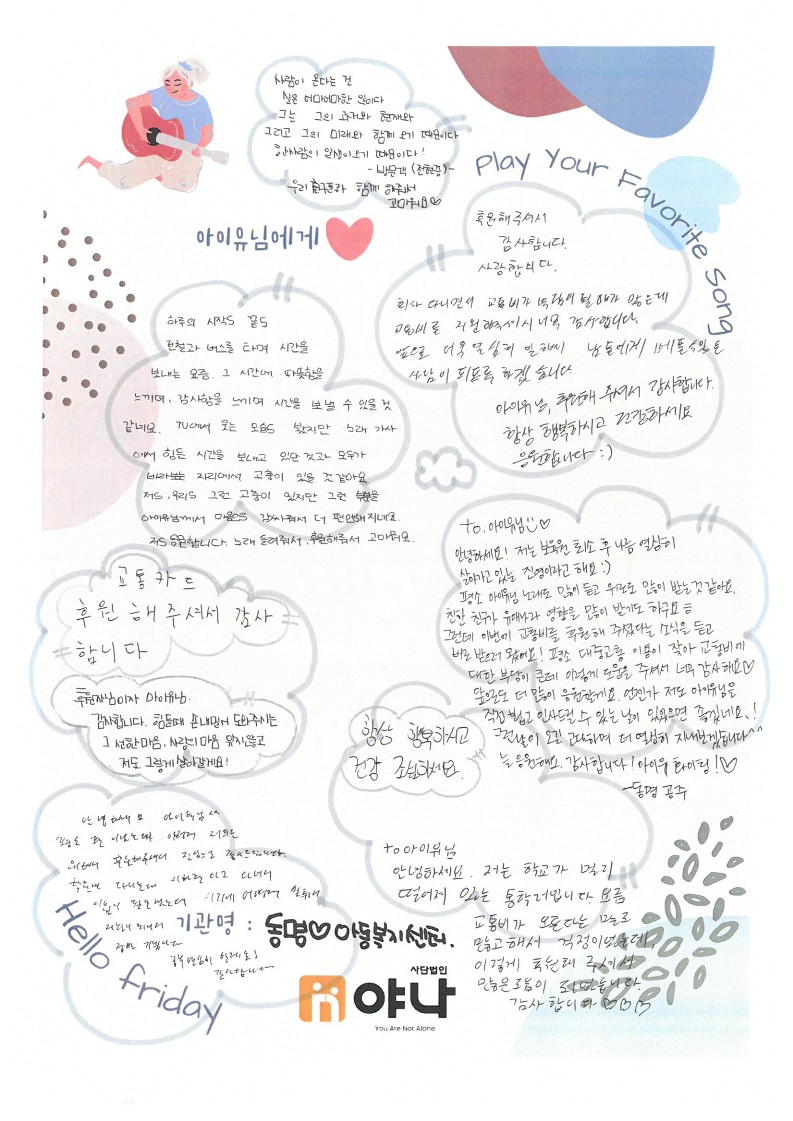 사람이 온다는 건
실은 어마어마한 일이다
그는 그의 과거와 현재와
그리고 그의 미래와 함께 오기 때문이다
한사람의 인생이 오기 때문이다!
- 방문객 (정현종) -
우리 친구들과 함께 해주셔서
고마워요♡
Play Your Favorite Song
아이유님에게
후원해주셔서
감사합니다.
사랑합니다.
회사 다니면서 교통비가 부담이 될 때가 많은데
교통비를 지원해주셔서 너무 감사합니다.
앞으로 더욱 열심히 일해서 남들에게 베풀 수 있는
사람이 되도록 하겠습니다
아이유님, 후원해 주셔서 감사합니다.
항상 행복하시고 건강하세요
응원합니다 :)
하루의 시작도 끝도
전철과 버스를 타며 시간을
보내는 요즘. 그 시간에 따뜻함을
느끼며, 감사함을 느끼며 시간을 보낼 수 있을 것
같네요. TV에서 웃는 모습도 봤지만 노래 가사
에서 힘든 시간을 보내고 있던 것과 모두가
바라보는 자리에서 고충이 있을 것 같아요
저도, 우리도 그런 고충이 있지만 그런
아이유님께서 마음으로 감싸줘서 더 편안해지네요.
저도 응원합니다. 노래 들려줘서, 후원해줘서 고마워요.
to. 아이유님♡
안녕하세요! 저는 보육원 퇴소 후 나름 열심히
살아가고 있는 진영이라고 해요 :)
평소 아이유님 노래도 많이 듣고 위로도 많이 받는 것 같아요.
친한 친구가 유애나라 영향을 많이 받기도 하구요
그런데 이번에 교통비를 후원해 주셨다는 소식을 듣고
바로 받으러 왔어요! 평소 대중교통 이용이 잦아 교통비에
대한 부담이 큰데 이렇게 도움을 주셔서 너무 감사해요♡
앞으로도 더 많이 응원할게요. 언젠가 저도 아이유님을
직접 뵙고 인사드릴 수 있는 날이 있었으면 좋겠네요!
그런 날이 오길 고대하며 더 열심히 지내보겠습니다^^
늘 응원해요. 감사합니다! 아이유 화이팅!♡
-동명 공주
교통카드
후원 해주셔서 감사
합니다
후원자님이자 아이유님.
감사합니다. 힘들때 손 내밀어 도와주시는
그 선한마음, 사랑의 마음 잊지않고
저도 그렇게 살아갈게요!
항상 행복하시고
건강 조심하세요.
안녕하세요 아이유님 ^^
to 아이유님
안녕하세요. 저는 학교가 멀리
떨어져 있는 통학러입니다. 요즘
교통비가 오른다는 말을
많이 해서 걱정이었는데,
이렇게 후원해 주셔서
많은 도움이 되었습니다.
감사합니다 ♡♡♡
기관명 : 동명♡아동복지센터.
Hello friday
사단법인
야나
You Are Not Alone